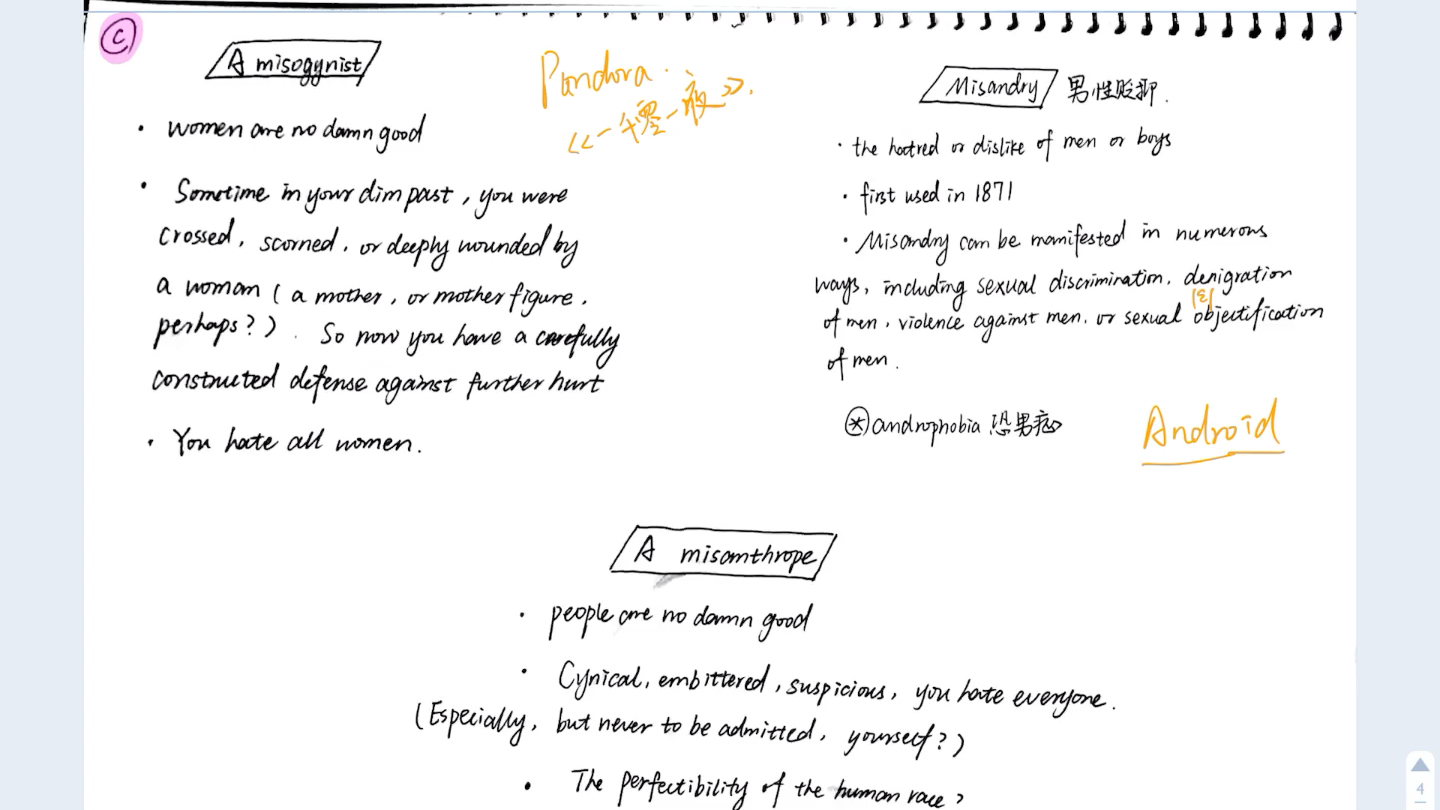 C
A misogynist
• women are no damn good
• Sometime in your dim past, you were
crossed, scorned, or deeply wounded by
a woman (a mother, or mother figure,
perhaps?). So now you have a carefully
constructed defense against further hurt
• You hate all women.
Pandora.
《一千零一夜》.
Misandry 男性贬抑.
• the hatred or dislike of men or boys
• first used in 1871
• Misandry can be manifested in numerous
ways, including sexual discrimination, denigration
of men, violence against men, or sexual objectification
of men.
* androphobia 恐男症
Android
A misanthrope
• people are no damn good
• Cynical, embittered, suspicious, you hate everyone.
(Especially, but never to be admitted, yourself?)
• The perfectibility of the human race?
4